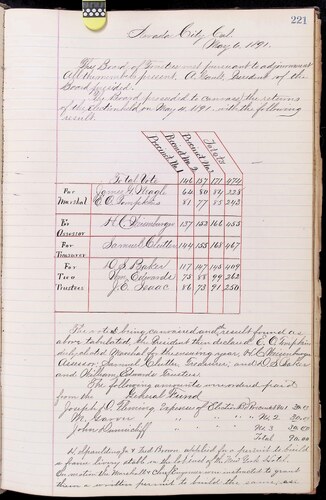 221
Nevada City Cal
May 6, 1891.
The Board of Trustees met pursuant to adjournment
All the members present. A. Gault, President of the
Board presided.
The Board proceeded to canvass the returns
of the election held on May 4, 1891, with the following
result
Precinct No. 1 Precinct No. 2 Precinct No. 3 Totals
Total Vote 146 157 171 474
For James H. Neagle 64 80 84 228
Marshal E. O. Tompkins 81 77 85 243
For Assessor H. C. Weisenburger 137 152 166 455
For Treasurer Samuel Clutter 144 155 168 467
For D. S. Baker 117 147 145 409
Two Wm. Edwards 75 88 99 262
Trustees J. E. Isaac 86 73 91 250
The vote being canvassed and result found as
above tabulated, the President then declared E. O. Tompkins
duly elected Marshal for the ensuing year, H. C. Weisenburger
Assessor, Samuel Clutter, Treasurer, and D. S. Baker
and William Edwards Trustees.
The following amounts were ordered paid
from the General Fund
Joseph J. O. Fleming Expenses of Election Precinct No. 1 30.00
M. Garver No. 2 30.00
John Dunnicliff No. 3 30.00
Total 90.00
K. Spaulding & Fred Brown petitioned for a permit to build
a livery stable
the Marshal & Chief were instructed to grant
them a written permit to build the same, as